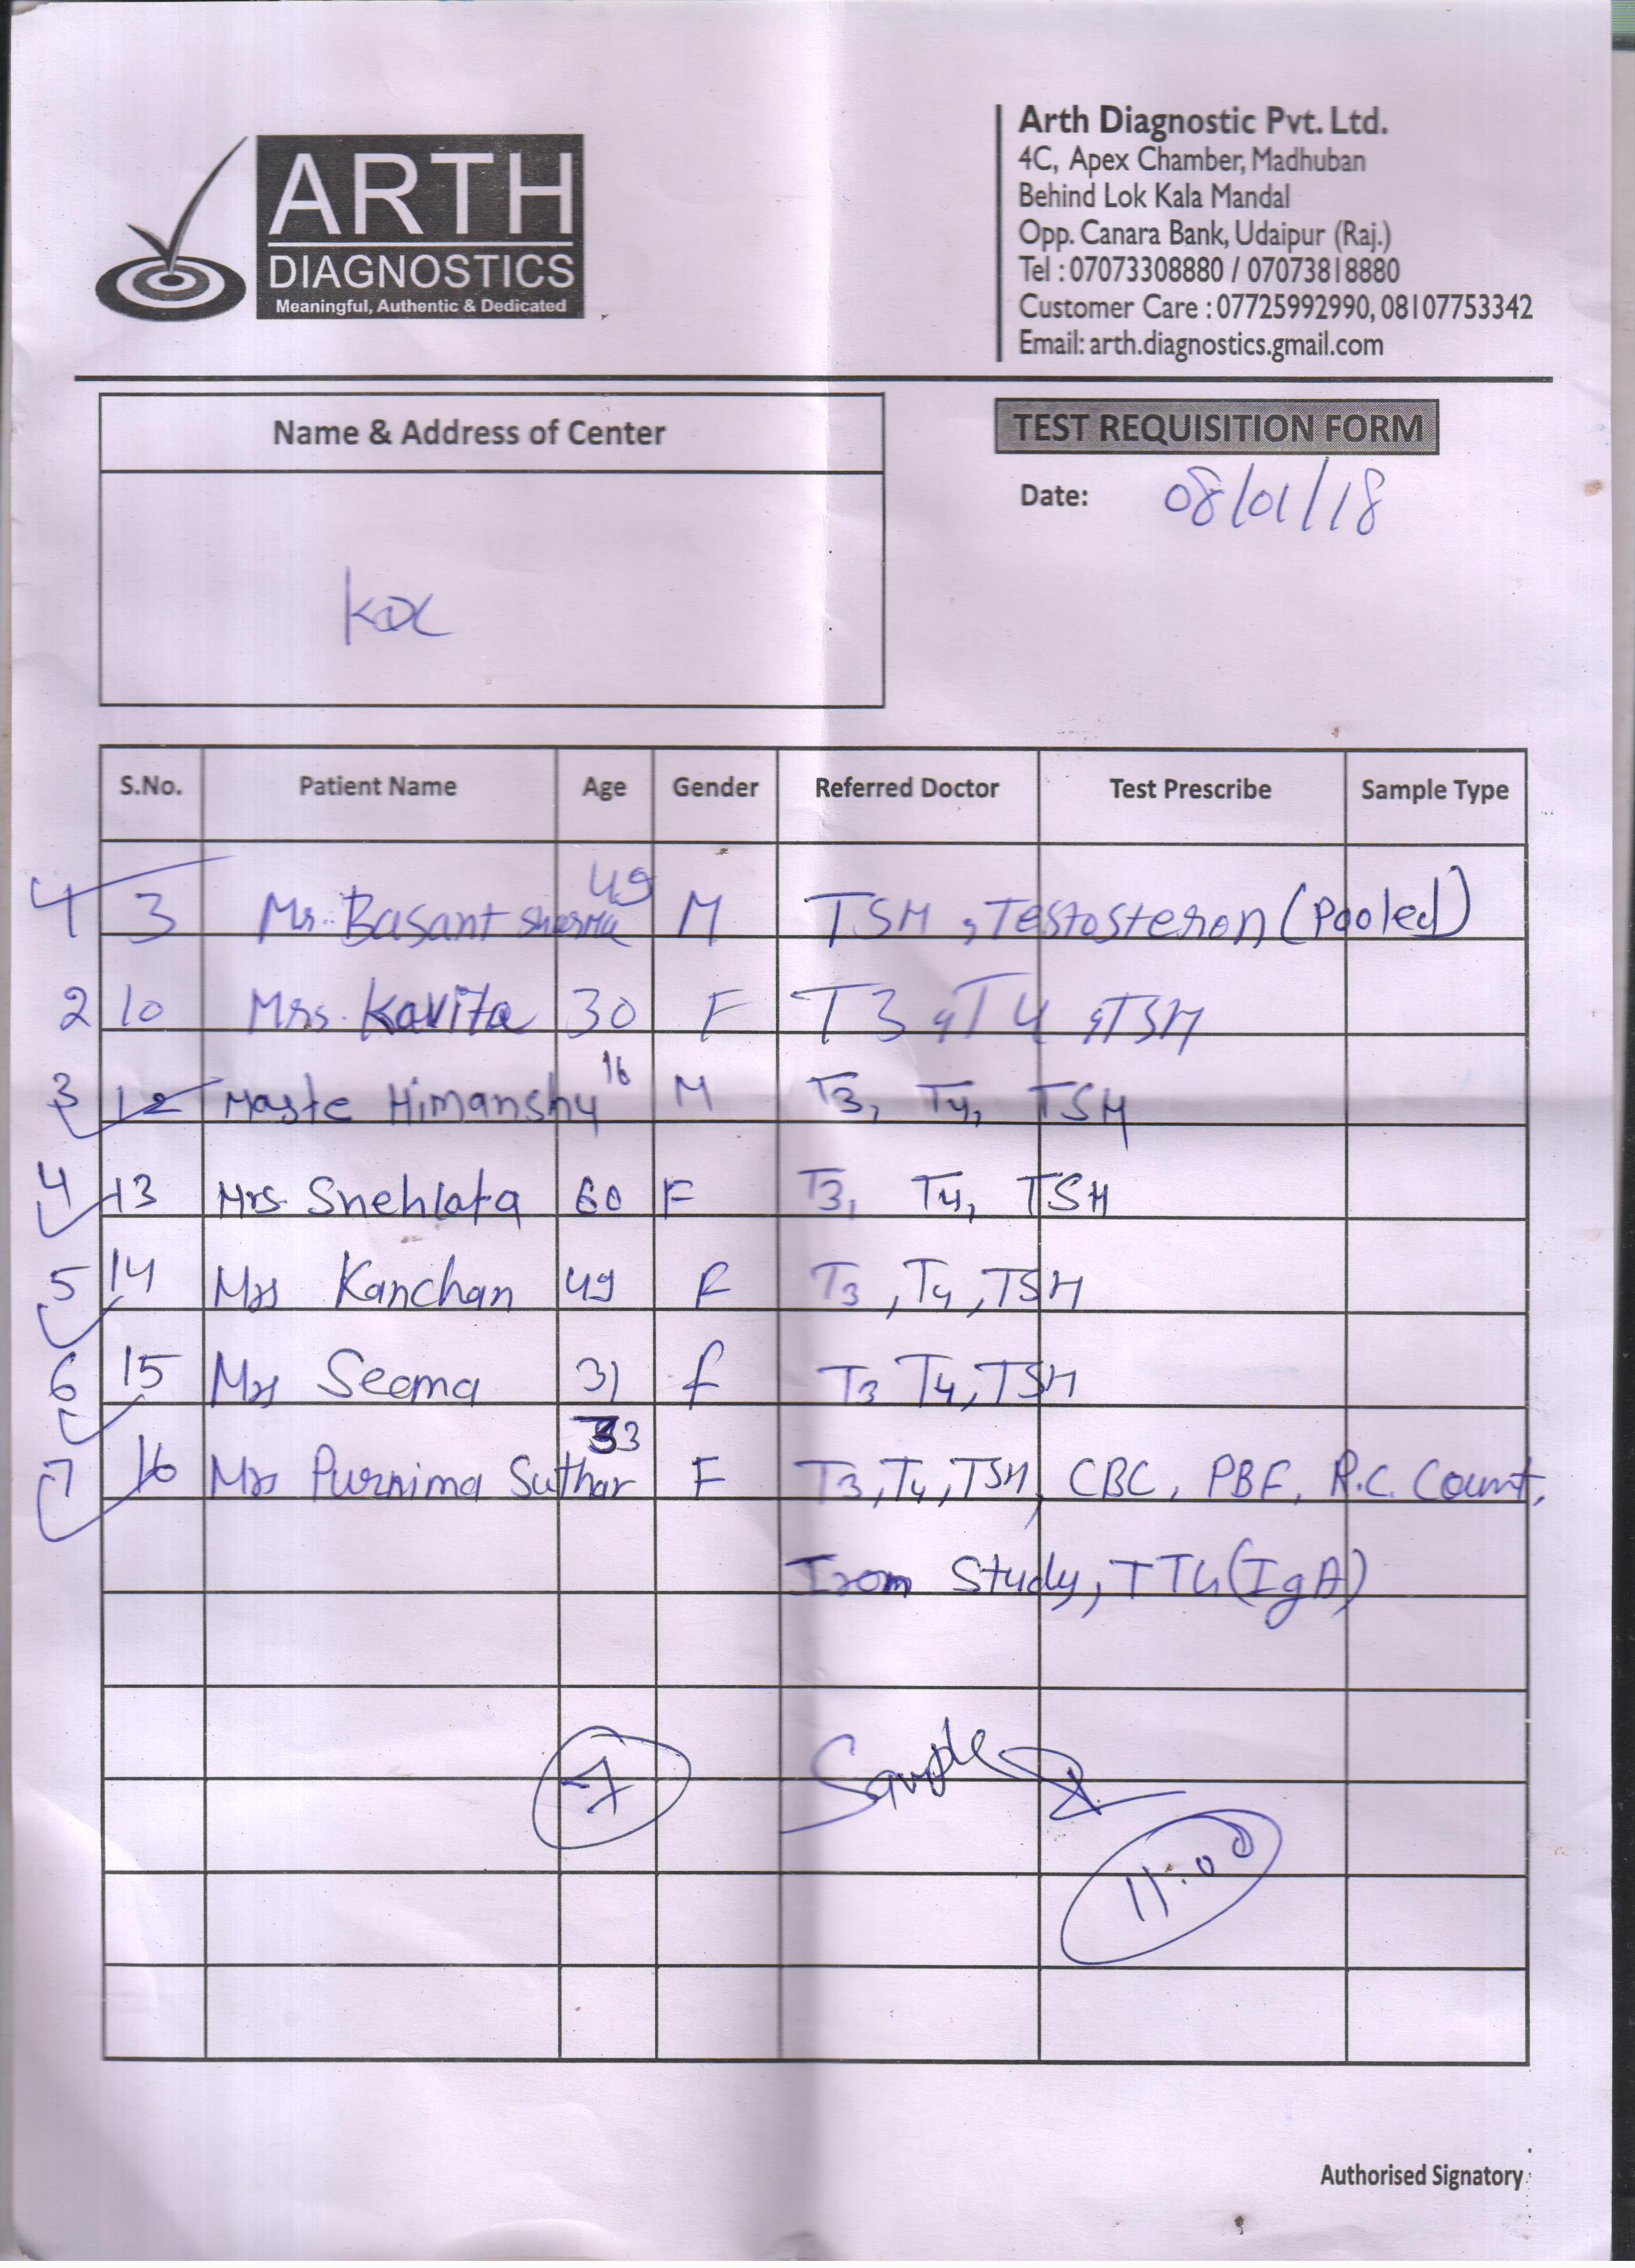 ARTH
DIAGNOSTICS
Meaningful, Authentic & Dedicated
Arth Diagnostic Pvt. Ltd.
4C, Apex Chamber, Madhuban
Behind Lok Kala Mandal
Opp. Canara Bank, Udaipur (Raj.)
Tel : 07073308880 / 07073818880
Customer Care : 07725992990, 08107753342
Email: arth.diagnostics.gmail.com
Name & Address of Center
TEST REQUISITION FORM
Date: 08/01/18
S.No. Patient Name Age Gender Referred Doctor Test Prescribe Sample Type
3 Mr. Basant Sharma 49 M TSH, Testosteron (Pooled)
2 10 Mrs. Kavita 30 F T3, T4, TSH
3 12 Maste Himanshu 16 M T3, T4, TSH
4 13 Mrs. Snehlata 60 F T3, T4, TSH
5 14 Mrs Kanchan 49 F T3, T4, TSH
6 15 Mrs Seema 31 f T3 T4, TSH
7 16 Mrs Purnima Suthar 33 F T3, T4, TSH, CBC, PBF, R.C. Count,
Iron Study, TTG (IgA)
7 Sample
11:00
Authorised Signatory